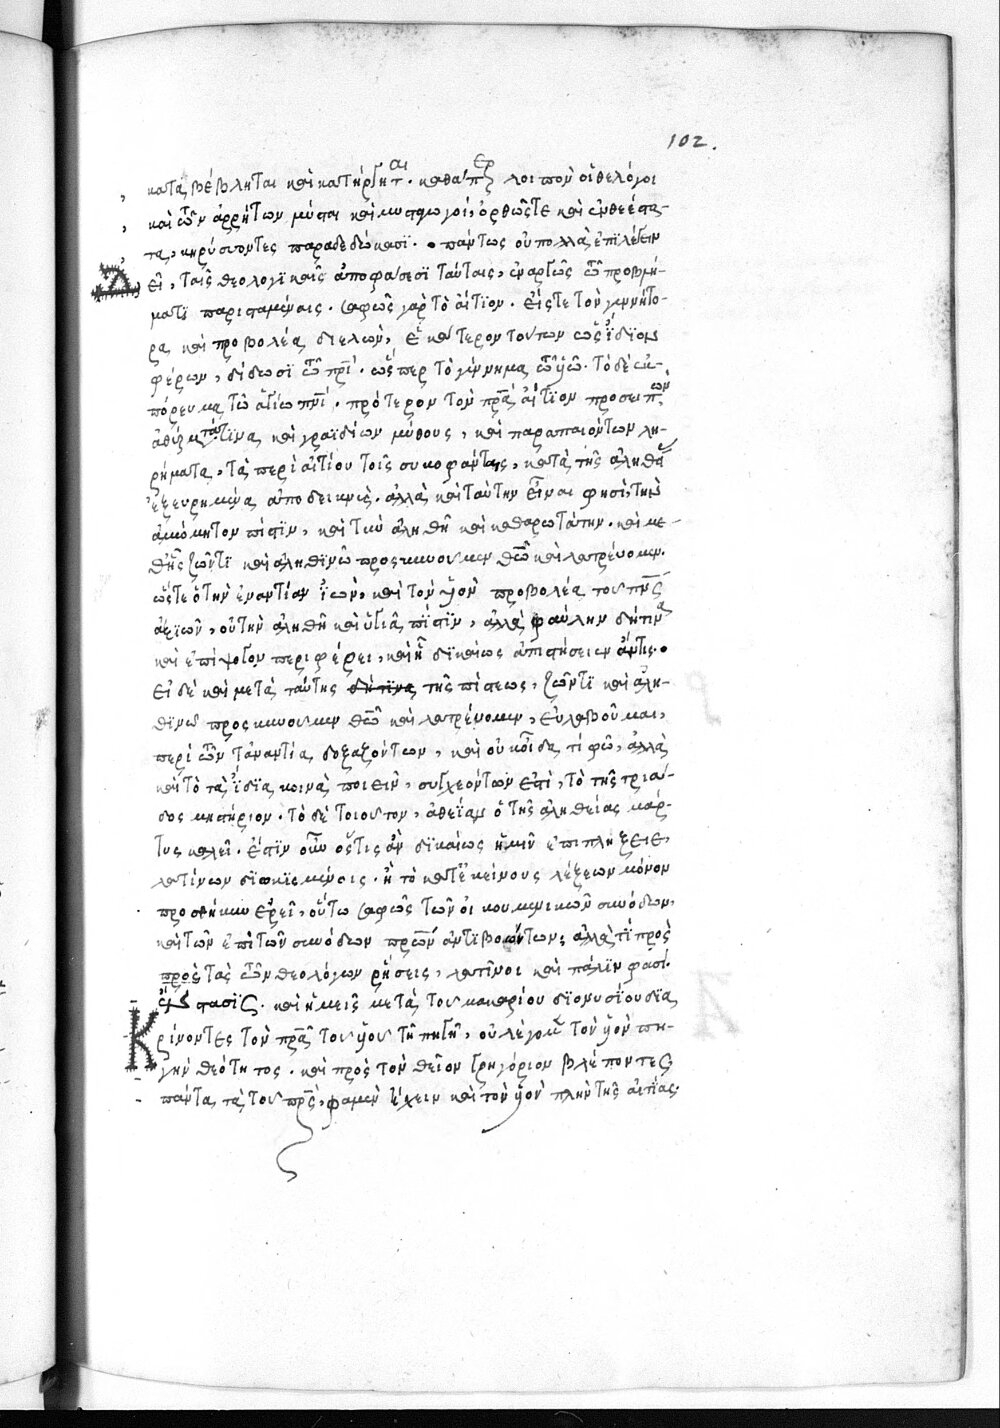 102.
καταβέβληται καὶ κατήργηται. καθάπερ λοιπὸν οἱ θεολόγοι
καὶ τῶν ἀρρήτων μύσται καὶ μυσταγωγοί, ὀρθῶς τε καὶ ἐνθεέστα-
τα, κηρύττοντες παραδεδώκασι. πάντως οὐ πολλὰ ἐπιλέγειν
Δεῖ, ταῖς θεολογικαῖς ἀποφάσεσι ταύταις, ἐναργῶς τῶ προβλή-
ματι παρισταμέναις. σαφῶς γὰρ τὸ αἴτιον. εἴς τε τὸν γεννήτο-
ρα καὶ προβολέα διελών, ἑκάτερον τούτων ὡς ἴδιον
φέρων, δίδωσι τῶ πρι. ὥσπερ τὸ γέννημα τῶ υἱῶ. τὸ δὲ ἐκ-
πόρευμα τῶ ἁγίω πνι. πρότερον τὸν πρα αἴτιον προσειπὼν
καὶ γραϊδίων μύθους, καὶ παραπαιόντων λη-
ρήματα, τὰ περὶ αἰτίου τοῖς συκοφάνταις, κατὰ τῆς ἀληθείας
ἐξευρημένα ἀποδεικνύς. ἀλλὰ καὶ ταύτην εἶναι φησὶ, τὴν
ἀμώμητον πίστιν, καὶ τὴν ἀληθῆ καὶ καθαρωτάτην. καὶ με-
θ' ἧς ζῶντι καὶ ἀληθινῶ προσκυνοῦμεν θῶ καὶ λατρεύομεν.
ὥστε ὁ τὴν ἐναντίαν ἰὼν, καὶ τὸν υἱὸν προβολέα τοῦ πνς
ἀξιῶν, οὐ τὴν ἀληθῆ καὶ ὑγιᾶ πίστιν, ἀλλὰ φαύλην δήτινα
καὶ ἐπίψογον περιφέρει, καὶ ᾗ δικαίως ἀπιστήσειεν ἄν τις.
εἰ δὲ καὶ μετὰ ταύτης δήτινα τῆς πίστεως, ζῶντι καὶ ἀλη-
θινῶ προσκυνοῦμεν θῶ καὶ λατρεύομεν, εὐλαβοῦμαι,
περὶ τῶν τἀναντία δοξαζόντων, καὶ οὐκ οἶδα τί φῶ, ἀλλὰ
καὶ τὸ τὰ ἴδια κοινὰ ποιεῖν, συγχεόντων ἐστὶ, τὸ τῆς τριά-
δος μυστήριον. τὸ δὲ τοιοῦτον, ἀθεΐαν ὁ τῆς ἀληθείας μάρ-
τυς καλεῖ. ἔστιν οὖν ὅστις ἂν δικαίως ἡμῖν ἐπιπλήξειε,
λατίνων διωκισμένοις. ἢ τὸ κατ' ἐκείνους λέξεων μόνον
προσθήκην ἐρεῖ, οὕτω σαφῶς τῶν οἰκουμενικῶν συνόδων,
καὶ τῶν ἐπὶ τῶν συνόδων πρων ἀντιβοώντων; ἀλλὰ τί πρὸς
πρὸς τὰς τῶν θεολόγων ῥήσεις, λατῖνοι καὶ πάλιν φασί.
ἔνστασις. καὶ ἡμεῖς μετὰ τοῦ μακαρίου διονυσίου δια
Κρίνοντες τὸν πρα τοῦ υἱοῦ τῆ πηγῆ, οὐ λέγομεν τὸν υἱὸν πη-
γὴν θεότητος. καὶ πρὸς τὸν θεῖον γρηγόριον βλέποντες
πάντα τὰ τοῦ πρς, φαμὲν ἔχειν καὶ τὸν υἱὸν πλὴν τῆς αἰτίας.